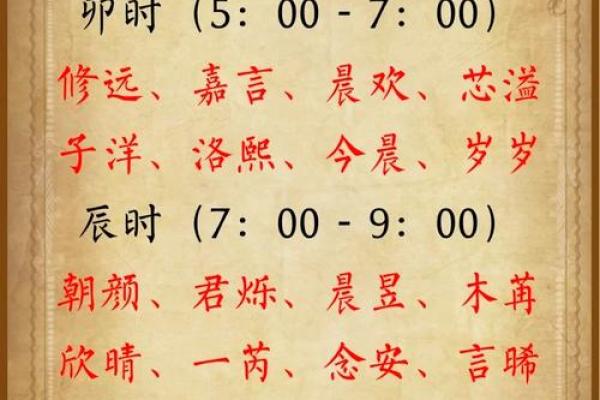 卯时（5：00-7：00）
修远、嘉言、晨欢、芯溢
子洋、洛熙、今晨、岁岁
辰时（7：00-9：00）
朝颜、君烁、晨昱、木苒
欣晴、一芮、念安、言晞